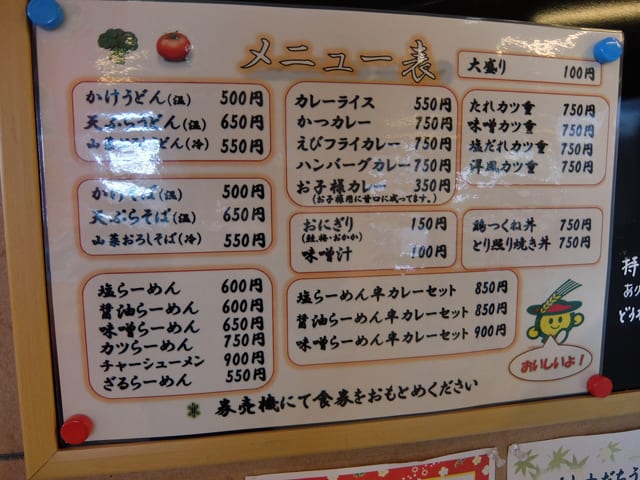 メニュー表
大盛り 100円
かけうどん(温) 500円
天ぷらうどん(温) 650円
山菜おろしうどん(冷) 550円
かけそば(温) 500円
天ぷらそば(温) 650円
山菜おろしそば(冷) 550円
塩らーめん 600円
醤油らーめん 600円
味噌らーめん 650円
カツらーめん 750円
チャーシューメン 900円
ざるらーめん 550円
カレーライス 550円
かつカレー 750円
えびフライカレー 750円
ハンバーグカレー 750円
お子様カレー 350円
(お子様用に甘口に成ってます。)
おにぎり 150円
(鮭.梅・おかか)
味噌汁 100円
塩らーめん半カレーセット 850円
醤油らーめん半カレーセット 850円
味噌らーめん半カレーセット 900円
たれカツ重 750円
味噌カツ重 750円
塩だれカツ重 750円
洋風カツ重 750円
鶏つくね丼 750円
とり照り焼き丼 750円
おいしいよ!
券売機にて食券をおもとめください